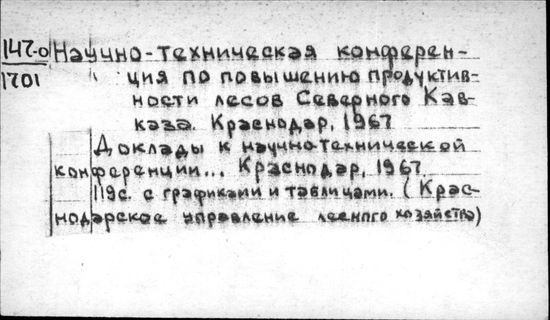 147-0
1701
Научно-техническая конферен-
ция по повышению продуктив-
ности лесов Северного Кав-
каза. Краснодар, 1967
Доклады к научно-технической
конференции... Краснодар, 1967.
119с. с графиками и таблицами. (Крас-
нодарское управление лесного хозяйства)